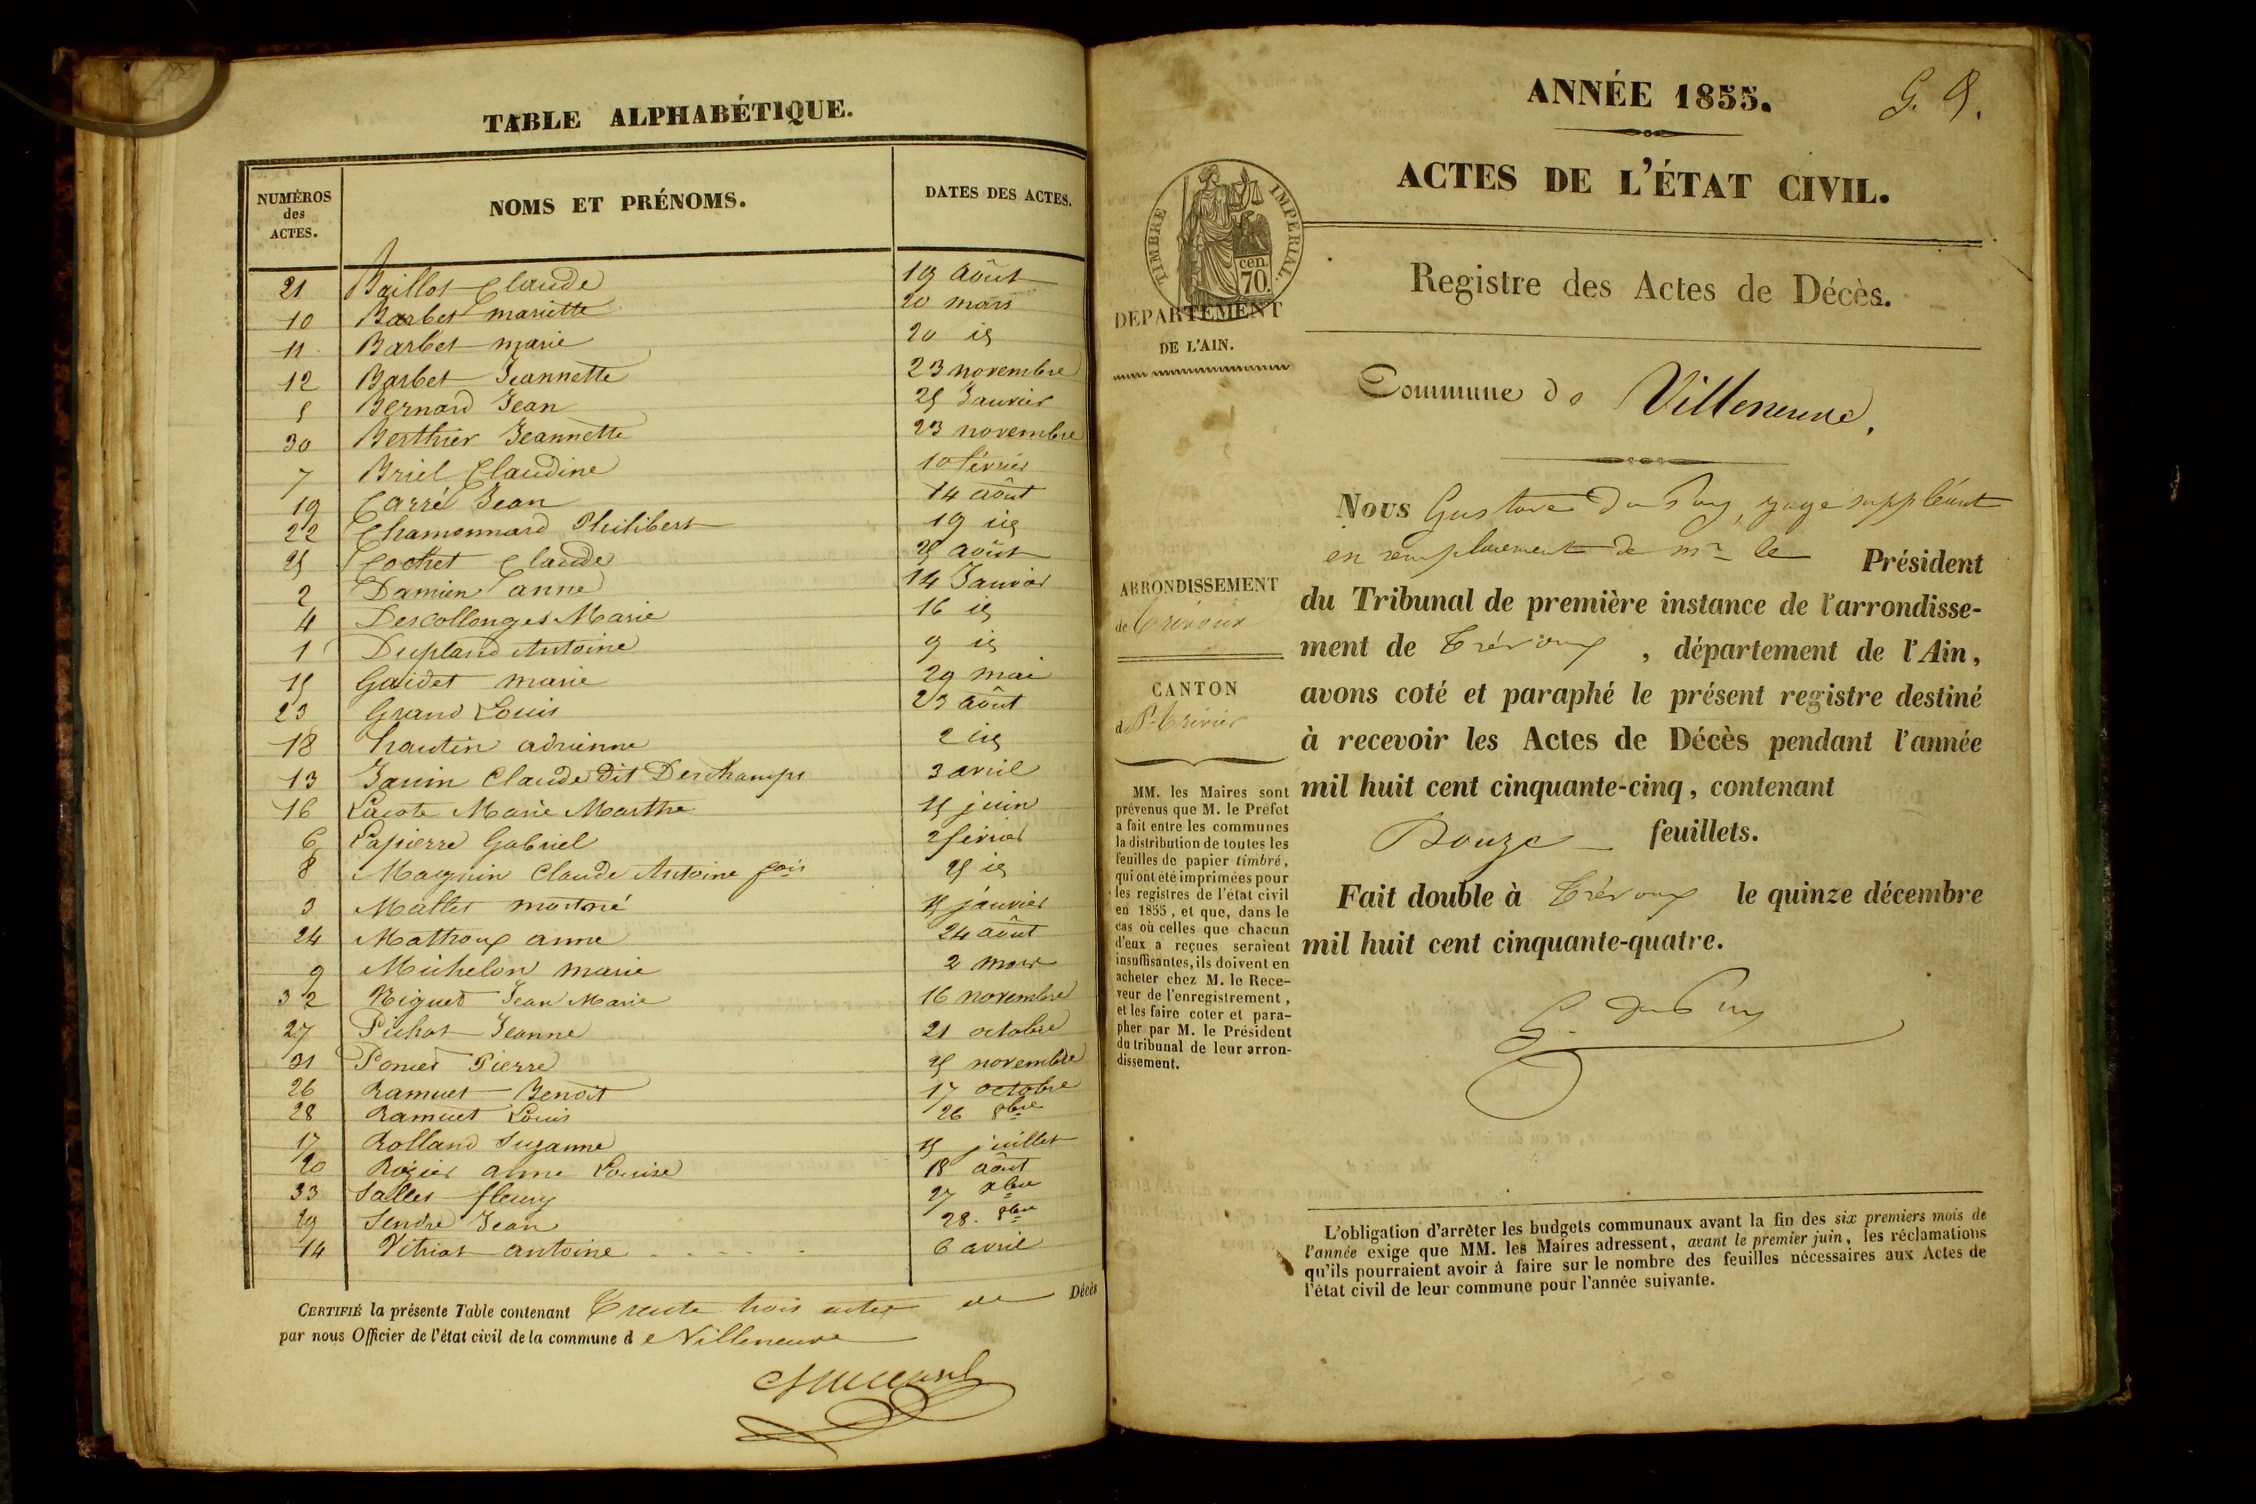 TABLE ALPHABÉTIQUE.
NUMÉROS des ACTES. NOMS ET PRÉNOMS. DATES DES ACTES.
21 Baillot Claude 19 août
10 Barbet mariette 20 mars
11 Barbet marie 20 id
12 Barbet Jeannette 23 novembre
5 Bernard Jean 25 Janvier
30 Berthier Jeannette 23 novembre
7 Briel Claudine 10 février
19 Carré Jean 14 août
22 Chamonnard Philibert 19 id
25 Cochet Claude 25 août
2 Damien anne 14 Janvier
4 Descollonges Marie 16 id
1 Dupland Antoine 9 id
15 Gaidet marie 29 mai
23 Grand Louis 23 août
18 hautin adrienne 2 id
13 Janin Claude dit Deschamps 3 avril
16 Lacote Marie Marthe 15 juin
6 Lapierre Gabriel 2 février
8 Magnin Claude Antoine fois 25 id
3 Mallet 15 janvier
24 Mathoux anne 24 août
9 Michelon marie 2 mars
32 Niguet Jean Marie 16 novembre
27 Pichat Jeanne 21 octobre
31 Poncet Pierre 25 novembre
26 Ramuet Benoit 17 octobre
28 Ramuet Louis 26 8bre
17 Rolland Suzanne 15 juillet
20 Rozier anne Louise 18 août
33 Salles fleury 27 xbre
29 Sendre Jean 28. 8bre
14 Vitriat antoine . . . . . 6 avril
CERTIFIÉ la présente Table contenant Trente trois actes de Décès
par nous Officier de l'état civil de la commune d e Villeneuve
ANNÉE 1855.
ACTES DE L'ÉTAT CIVIL.
TIMBRE IMPÉRIAL.
cen. 70.
DEPARTEMENT
DE L'AIN.
Registre des Actes de Décès.
Commune de Villeneuve.
ARRONDISSEMENT
de Trévoux
CANTON
d St Trivier
MM. les Maires sont
prévenus que M. le Préfet
a fait entre les communes
la distribution de toutes les
feuilles de papier timbré,
qui ont été imprimées pour
les registres de l'état civil
en 1855, et que, dans le
cas où celles que chacun
d'eux a reçues seraient
insuffisantes, ils doivent en
acheter chez M. le Rece-
veur de l'enregistrement,
et les faire coter et para-
pher par M. le Président
du tribunal de leur arron-
dissement.
Nous Gustave DuPuy, juge suppléant
en remplacement de mr le Président
du Tribunal de première instance de l'arrondisse-
ment de Trévoux, département de l'Ain,
avons coté et paraphé le présent registre destiné
à recevoir les Actes de Décès pendant l'année
mil huit cent cinquante-cinq, contenant
Douze feuillets.
Fait double à Trévoux le quinze décembre
mil huit cent cinquante-quatre.
G. DuPuy
L'obligation d'arrêter les budgets communaux avant la fin des six premiers mois de
l'année exige que MM. les Maires adressent, avant le premier juin, les réclamations
qu'ils pourraient avoir à faire sur le nombre des feuilles nécessaires aux Actes de
l'état civil de leur commune pour l'année suivante.